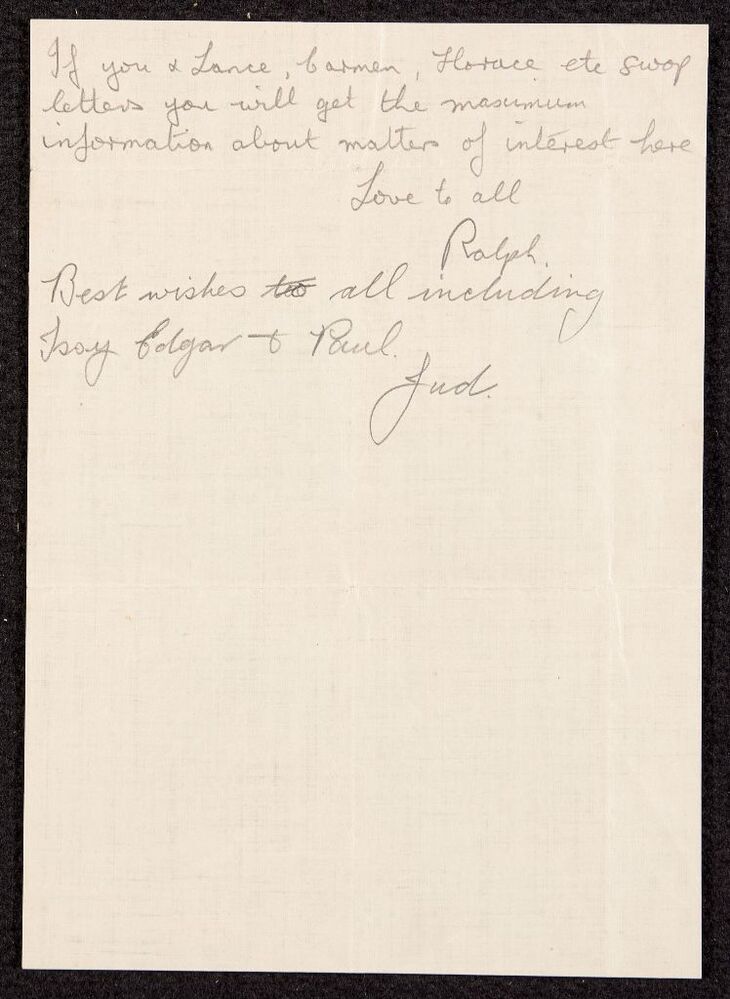 If you & Lance, Carmen, Horace etc swop
letters you will get the maximum
information about matters of interest here
Love to all
Ralph.
Best wishes to all including
Edgar & Paul.
Jud.